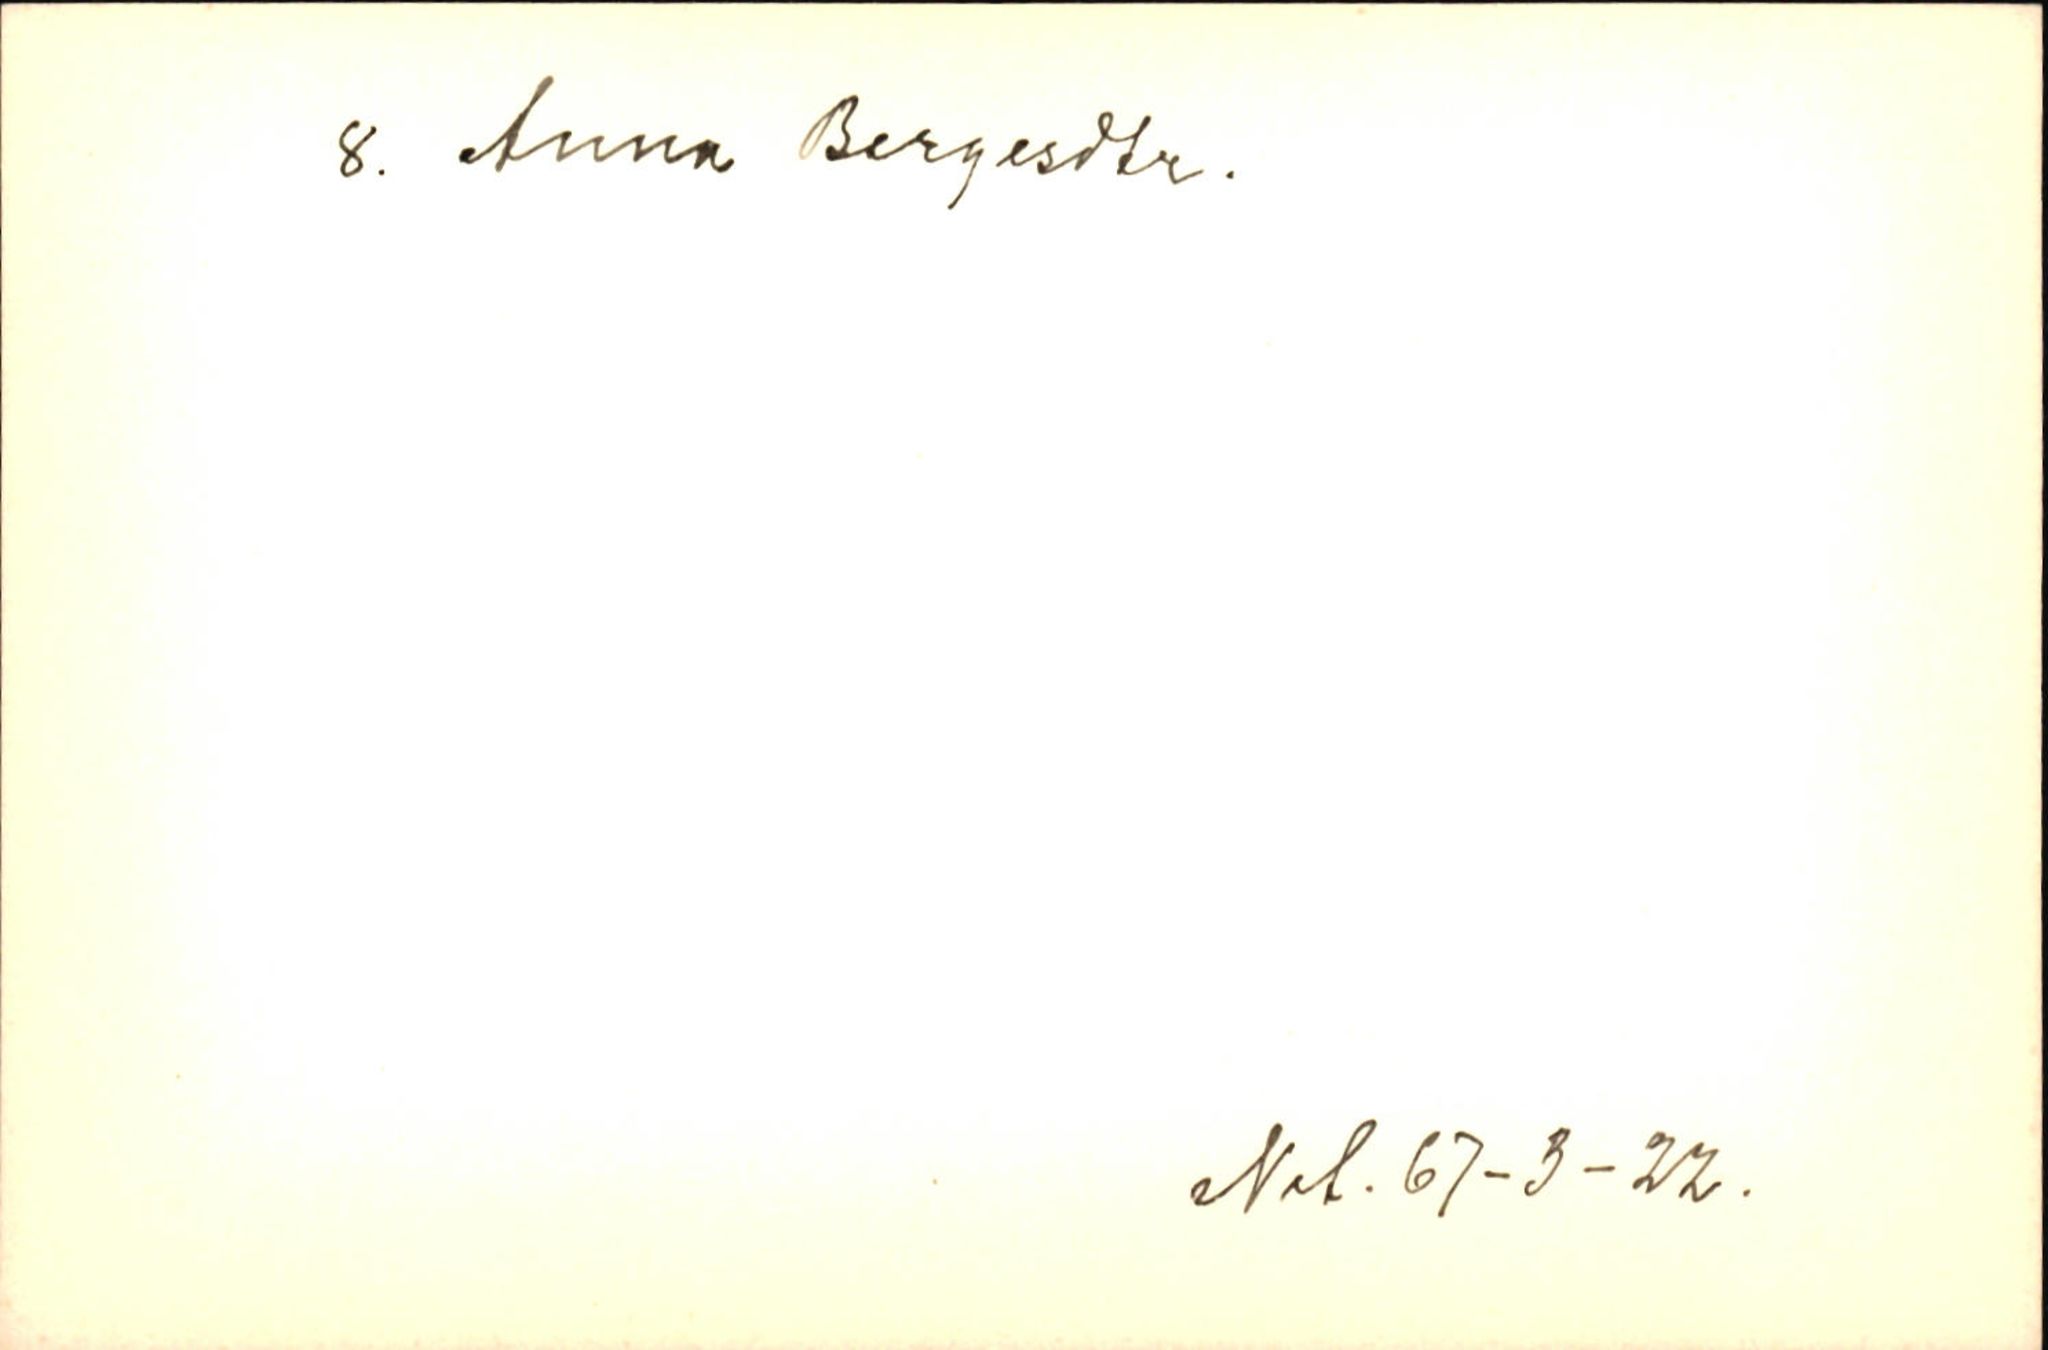 8. Anna Bergesdtr.
Not. 67-3-22.